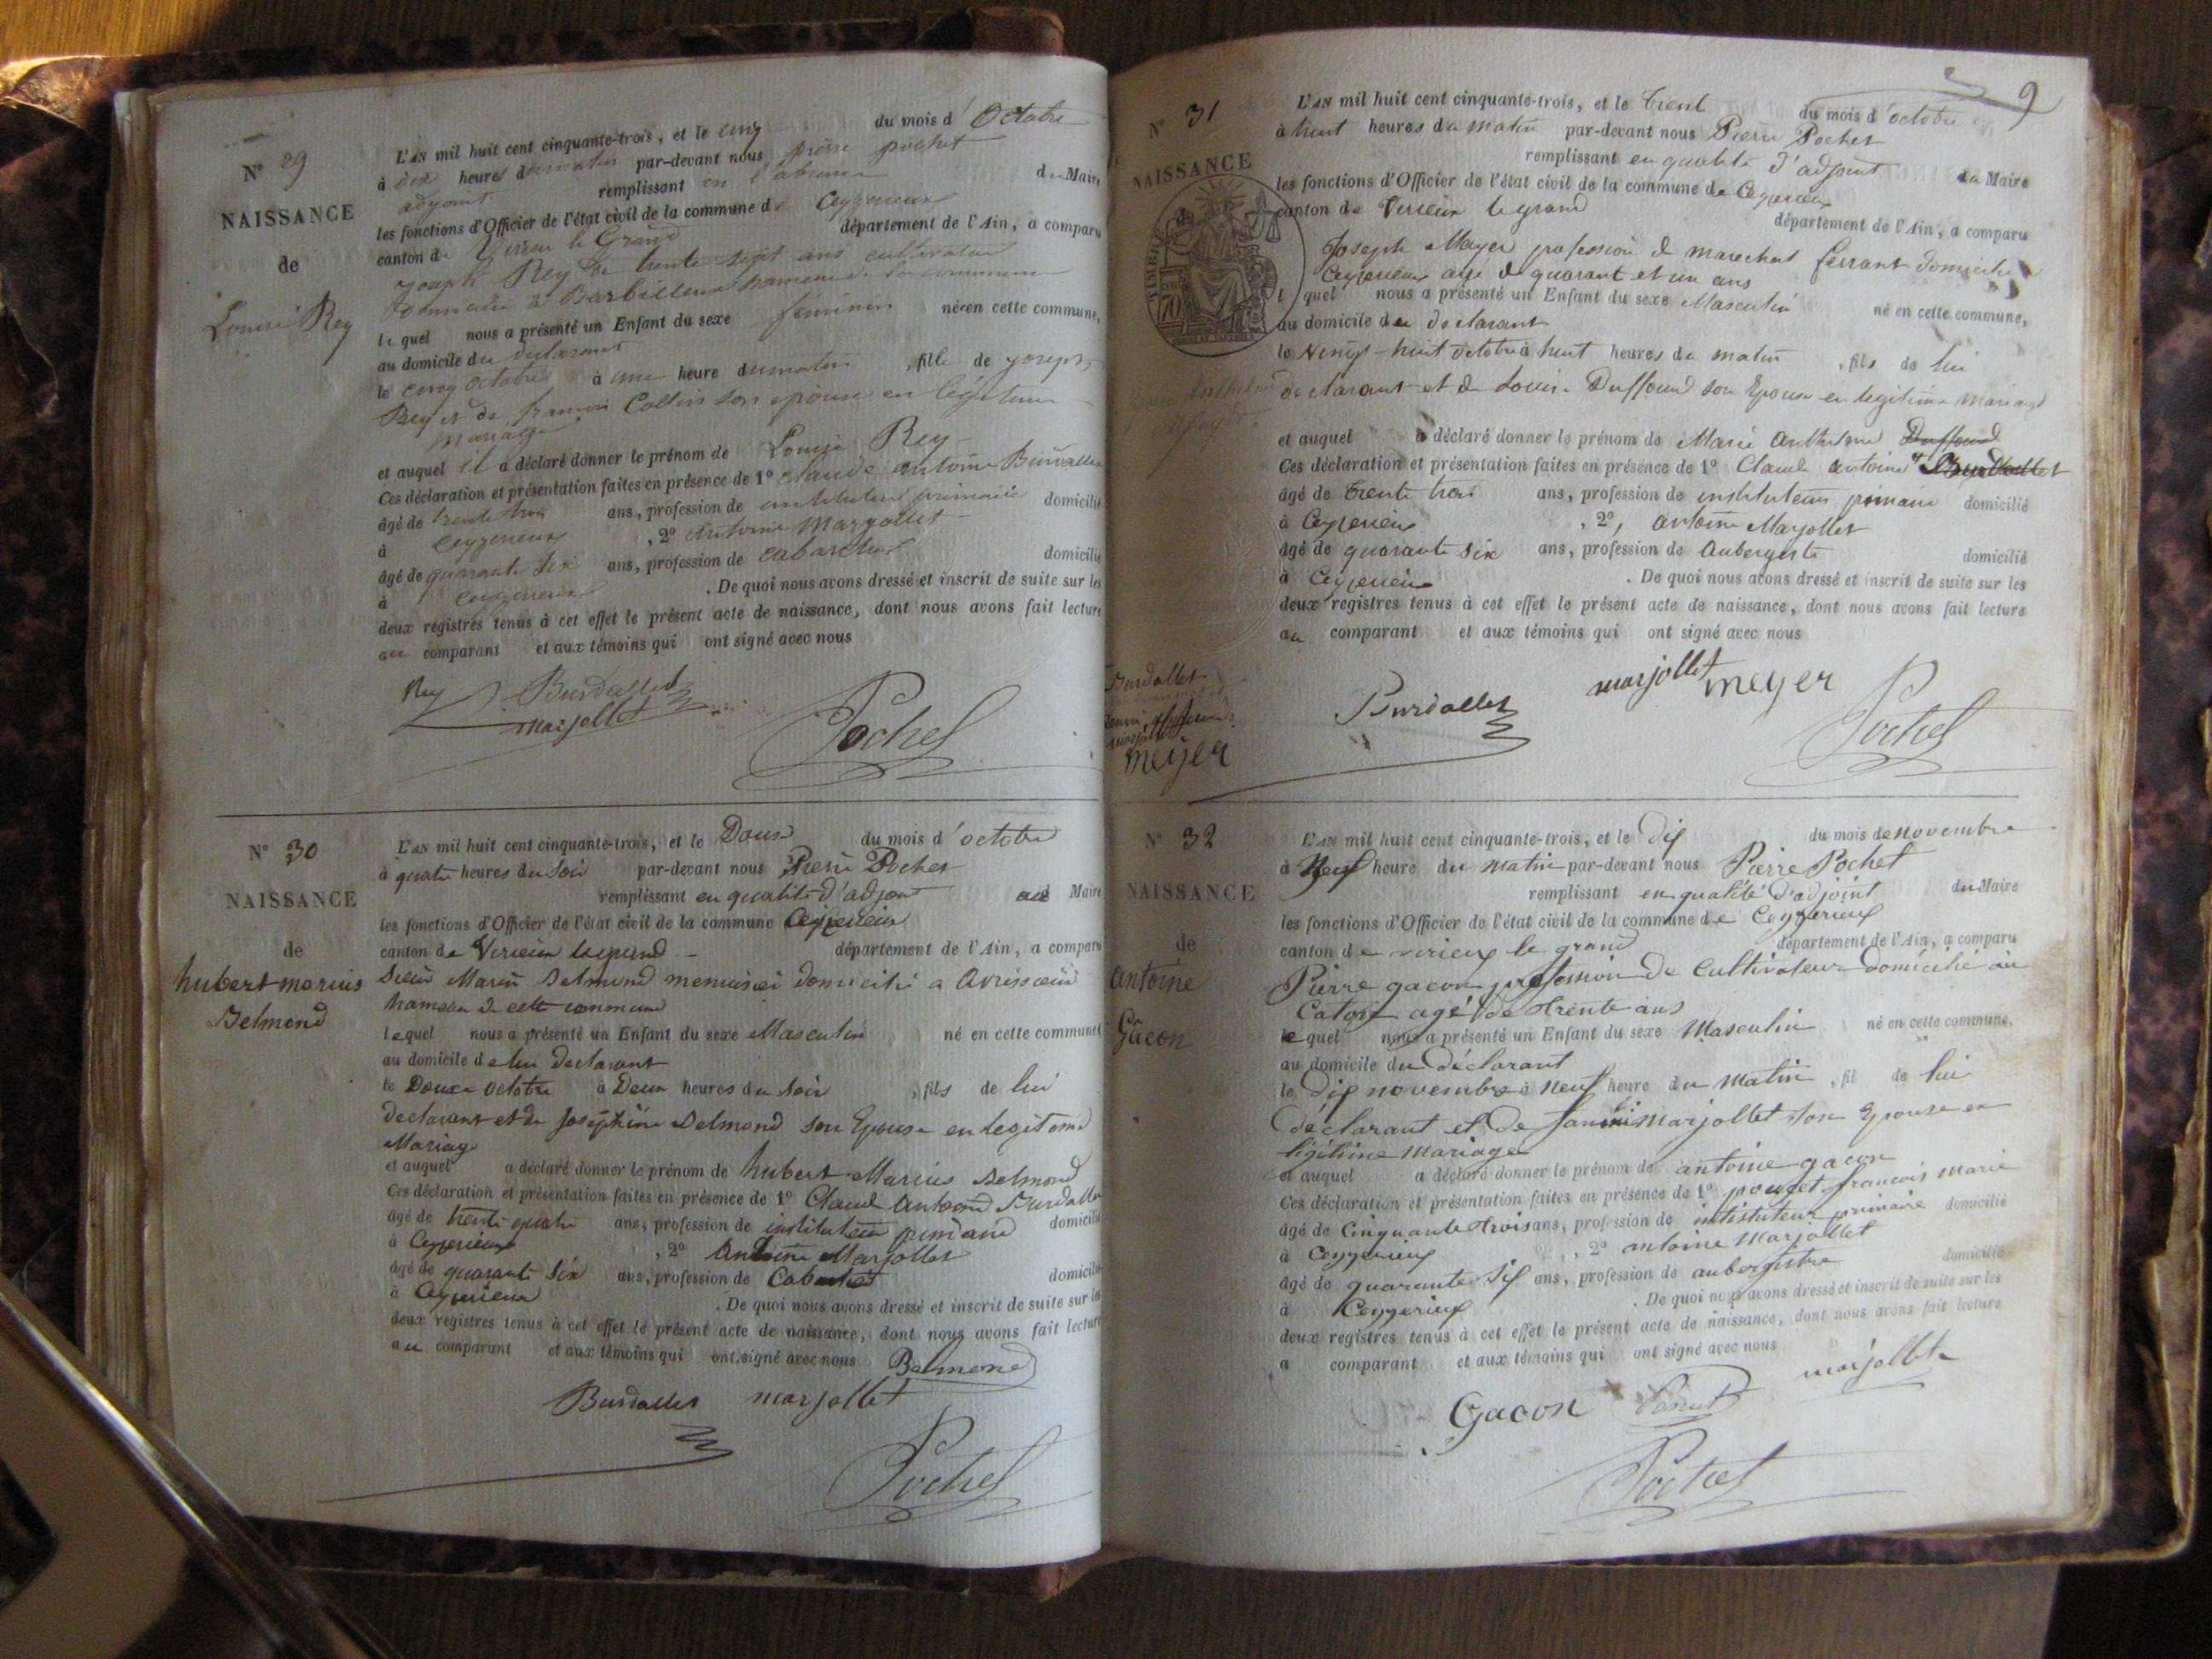 N° 29
NAISSANCE
de
Louise Rey
L'AN mil huit cent cinquante-trois, et le cinq du mois d'Octobre
à dix heures du matin par-devant nous pierre pochet
adjoint remplissant en l'absence du Maire
les fonctions d'Officier de l'état civil de la commune de Ceyzerieux
canton de Virieu le Grand département de l'Ain, a comparu
joseph Rey de trente sept ans cultivateur
domicilié à Barbilleux hameau de la commune
lequel nous a présenté un Enfant du sexe féminin né en cette commune,
au domicile du declarant
le cinq octobre à une heure du matin, fille de joseph
Rey et de Collin son épouse en légitime
mariage
et auquel il a déclaré donner le prénom de Louise Rey
Ces déclaration et présentation faites en présence de 1° claude antoine Burdallet
âgé de trente trois ans, profession de instituteur primaire domicilié
à Ceyzerieux, 2° Antoine Marjollet
âgé de quarante six ans, profession de cabaretier domicilié
à Ceyzerieux. De quoi nous avons dressé et inscrit de suite sur les
deux registres tenus à cet effet le présent acte de naissance, dont nous avons fait lecture
au comparant et aux témoins qui ont signé avec nous
Rey Burdallet
marjollet
Pochet
N° 30
NAISSANCE
de
hubert marius
Belmond
L'AN mil huit cent cinquante-trois, et le Douze du mois d'octobre
à quatre heures du Soir par-devant nous Pierre Pochet
remplissant en qualité d'adjoint au Maire
les fonctions d'Officier de l'état civil de la commune Ceyzerieux
canton de Virieux legrand département de l'Ain, a comparu
Sieur Marin Belmond menuisier domicilié a
hameau de cette commune
lequel nous a présenté un Enfant du sexe Masculin né en cette commune
au domicile de lui declarant
le Douze octobre à Deux heures du Soir, fils de lui
declarant et de Joséphine Belmond son Epouse en legitime
Mariage
et auquel a déclaré donner le prénom de hubert Marius Belmond
Ces déclaration et présentation faites en présence de 1° Claude Antoine Burdallet
âgé de trente quatre ans, profession de instituteur primaire domicilié
à Ceyzerieux, 2° Antoine Marjollet
âgé de quarante six ans, profession de Cabaretier domicilié
à Ceyzerieux. De quoi nous avons dressé et inscrit de suite sur les
deux registres tenus à cet effet le présent acte de naissance, dont nous avons fait lecture
au comparant et aux témoins qui ont signé avec nous Belmond
Burdallet marjollet
Pochet
9
N° 31
NAISSANCE
de
L'AN mil huit cent cinquante-trois, et le trent du mois d'octobre
à huit heures du matin par-devant nous Pierre Pochet
remplissant en qualité d'adjoint du Maire
les fonctions d'Officier de l'état civil de la commune de Ceyzerieux
canton de Virieux legrand département de l'Ain, a comparu
Joseph Mayer profession de marechal ferrant domicilié
Ceyzerieux agé de quarant et un ans
lequel nous a présenté un Enfant du sexe Masculin né en cette commune,
au domicile du declarant
le Vingt-huit octobre à huit heures du matin, fils de lui
declarant et de Louise Duffound son Epouse en legitime mariage
et auquel a déclaré donner le prénom de Marie Anthelme Duffound
Ces déclaration et présentation faites en présence de 1° Claude antoine Burdallet
âgé de trente trois ans, profession de instituteur primaire domicilié
à Ceyzerieux, 2°, antoine Marjollet
âgé de quarante six ans, profession de Aubergiste domicilié
à Ceyzerieux. De quoi nous avons dressé et inscrit de suite sur les
deux registres tenus à cet effet le présent acte de naissance, dont nous avons fait lecture
au comparant et aux témoins qui ont signé avec nous
Burdallet
meyer
Burdallet marjollet meyer
Pochet
N° 32
NAISSANCE
de
antoine
Gacon
L'AN mil huit cent cinquante-trois, et le Dix du mois de novembre
à Neuf heure du matin par-devant nous Pierre Pochet
remplissant en qualité d'adjoint du Maire
les fonctions d'Officier de l'état civil de la commune de Ceyzerieux
canton de virieux le grand département de l'Ain, a comparu
Pierre gacon profession de Cultivateur domicilié au
Caton agé de trente ans
lequel nous a présenté un Enfant du sexe Masculin né en cette commune,
au domicile du déclarant
le Dix novembre à neuf heure du matin, fil de lui
déclarant et de fanni marjollet son Epouse en
légitime mariage
et auquel a déclaré donner le prénom de antoine gacon
Ces déclaration et présentation faites en présence de 1° françois marie
âgé de Cinquante trois ans, profession de intistuteur primaire domicilié
à Ceyzerieux, 2° antoine marjollet
âgé de quarante six ans, profession de aubergistre domicilié
à Ceyzerieux. De quoi nous avons dressé et inscrit de suite sur les
deux registres tenus à cet effet le présent acte de naissance, dont nous avons fait lecture
a comparant et aux témoins qui ont signé avec nous
Gacon marjollet
Pochet